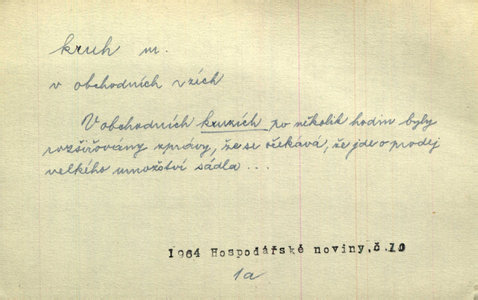 kruh m.
v obchodních zích
V obchodních kruzích po několik hodin byly
rozšiřovány zprávy, že se očekává, že jde o prodej
velkého množství sádla...
1964 Hospodářské noviny,č.10
1a